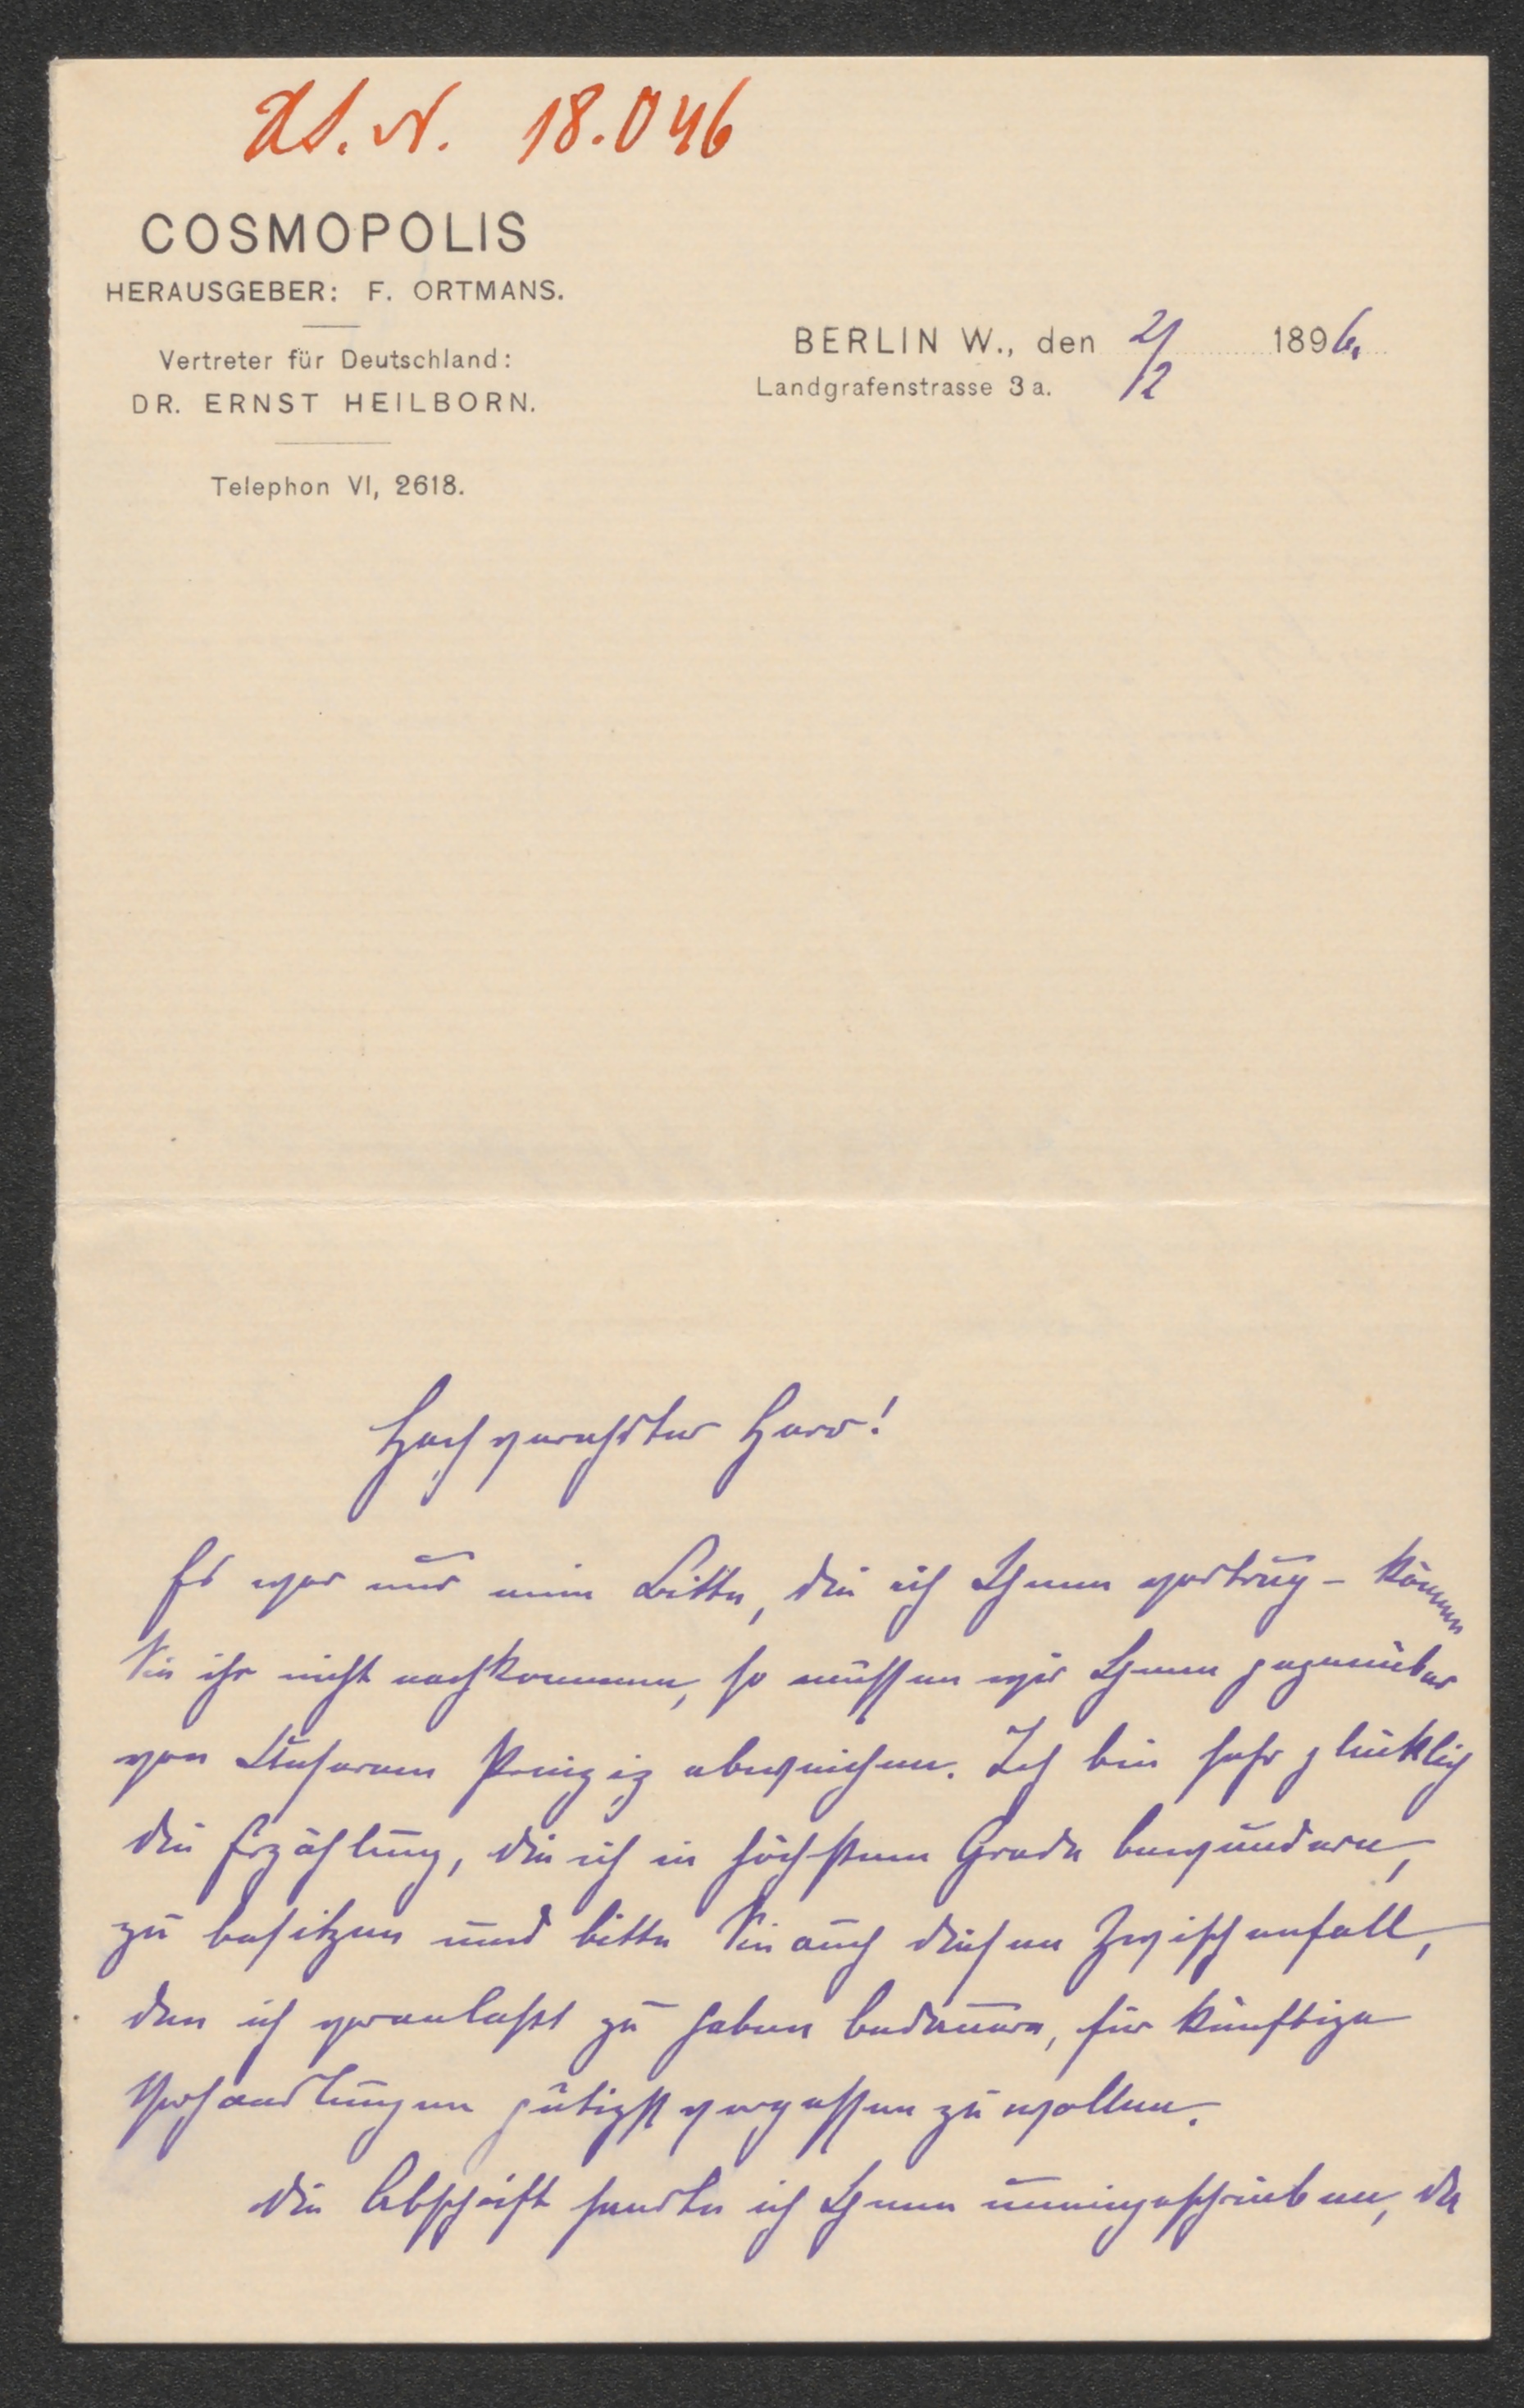 H.I.N. 18.046
COSMOPOLIS
HERAUSGEBER: F. ORTMANS.
Vertreter für Deutschland:
DR. ERNST HEILBORN.
Telephon VI, 2618.
BERLIN W., den 2/12 1896.
Landgrafenstrasse 3a.
Hochgeehrter Herr!
Es war nur eine Bitte, die ich Ihnen vortrug – können
Sie ihr nicht nachkommen, so müssen wir Ihnen gegenüber
von Unserem Prinzip abweichen. Ich bin sehr glücklich
die Erzählung, die ich in höchstem Grade bewundere,
zu besitzen und bitte Sie auch diesen Zwischenfall,
den ich veranlaßt zu haben bedauere, für künftige
Verhandlungen gütigst vergessen zu wollen.
Die Abschrift sandte ich Ihnen uneingeschrieben, da